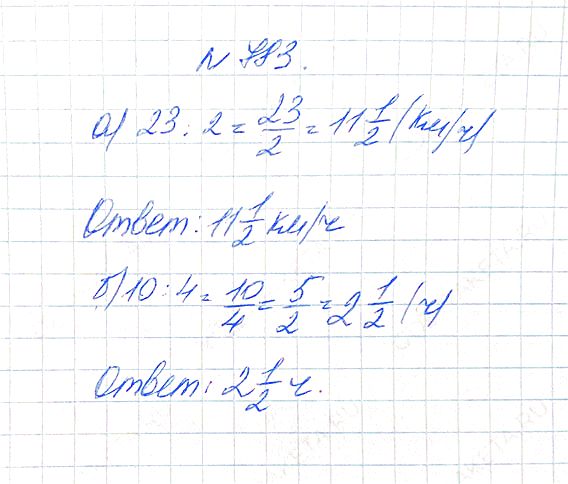 № 783.
а) 23 : 2 = 23/2 = 11 1/2 (км/ч)
Ответ: 11 1/2 км/ч
б) 10 : 4 = 10/4 = 5/2 = 2 1/2 (ч)
Ответ: 2 1/2 ч.